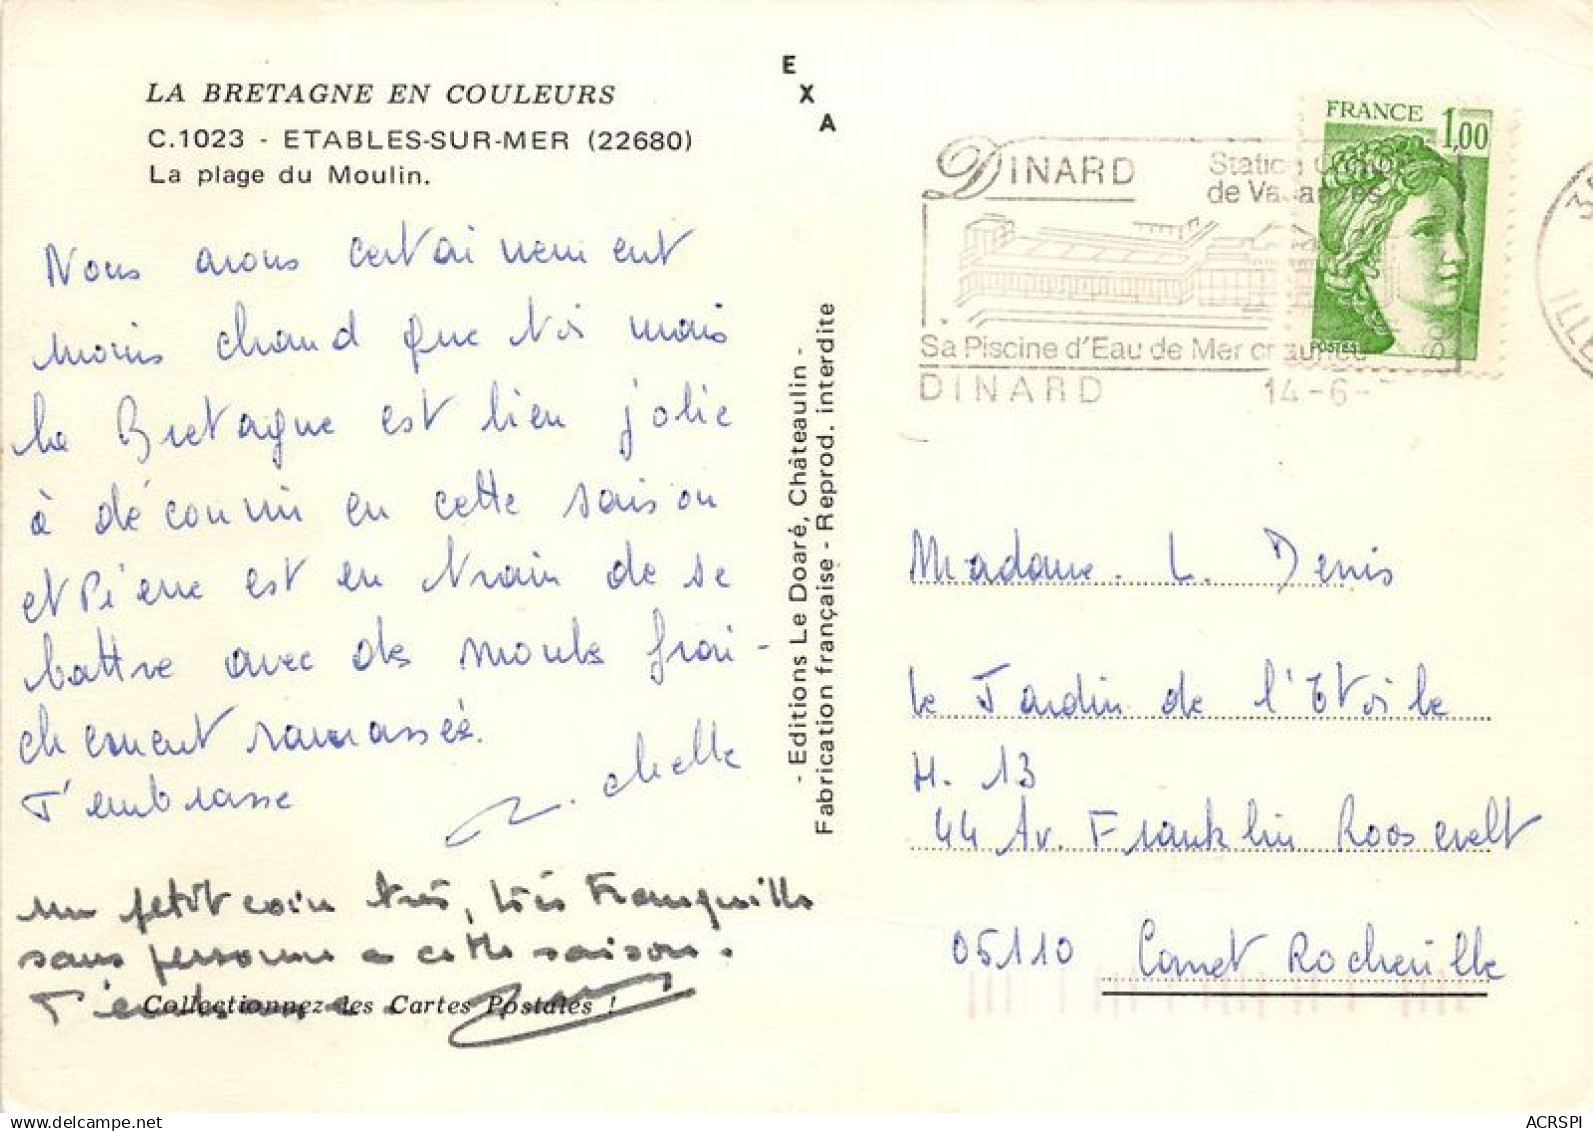 LA BRETAGNE EN COULEURS
C.1023 - ETABLES-SUR-MER (22680)
La plage du Moulin.
Nous avons certainement
moins chaud que toi mais
la Bretagne est bien jolie
à découvrir en cette saison
et Pierre est en train de se
battre avec des moules frai-
chement ramassées.
T'embrasse
M. chelle
un petit coin très, très tranquille
sans personne a cette saison.
T'embrasse
Collectionnez les Cartes Postales !
E
X
A
- Editions Le Doaré, Châteaulin -
Fabrication française - Reprod. interdite
DINARD
Station
de Vacances
Sa Piscine d'Eau de Mer chauffée
DINARD
14-6-
FRANCE 1,00
POSTES
35
ILLE
Madame L. Denis
Le Jardin de l'Etoile
H. 13
44 Av. Franklin Roosevelt
05110 Cannet Rocheville
ACRSPI